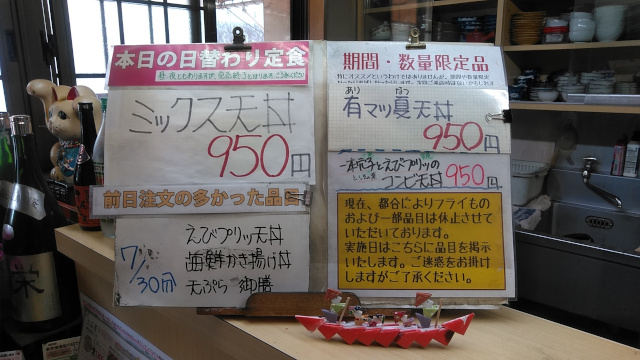 本日の日替わり定食
昼夜ともありますが、完売終了となります。ご了承ください
ミックス天丼
950円
前日注文の多かった品目
7/30の分
えびプリッ天丼
海鮮かき揚げ丼
天ぷら御膳
期間・数量限定品
あり なつ
有マツ夏天丼
950円
一本穴子とえびプリッの
コンビ天丼 950円
現在、都合によりフライもの
および一部品目は休止させて
いただいております。
実施日はこちらに品目を掲示
いたします。ご迷惑をお掛け
しますがご了承ください。
栄